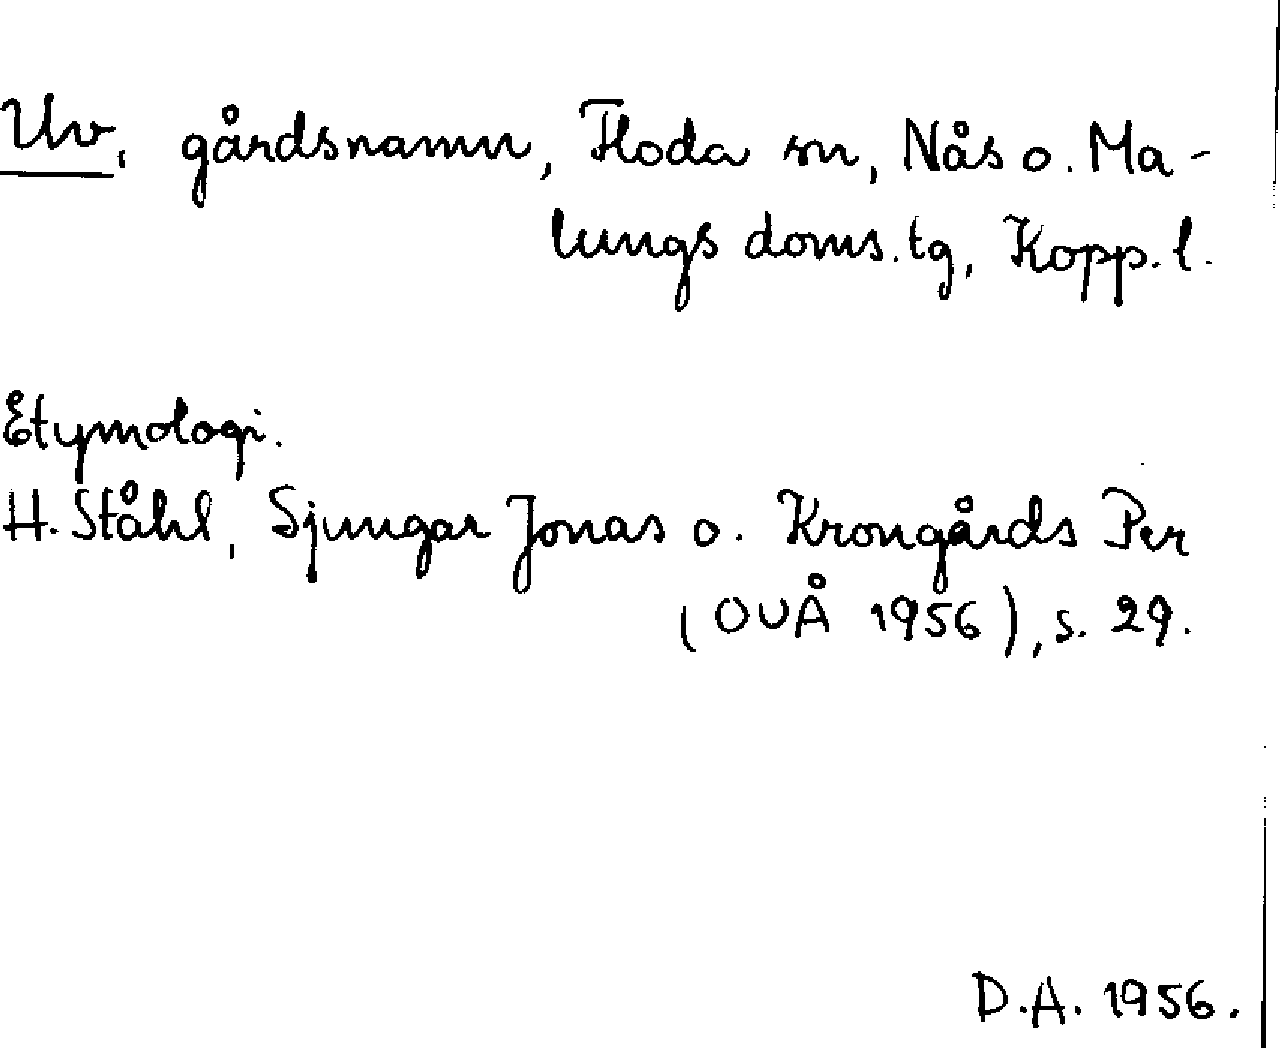 Uv, gårdsnamn, Floda sn, Nås o. Ma-
lungs doms.tg, Kopp. l.
Etymologi.
H. Ståhl, Sjungar Jonas o. Krongårds Per
(OUÅ 1956), s. 29.
D.A. 1956.